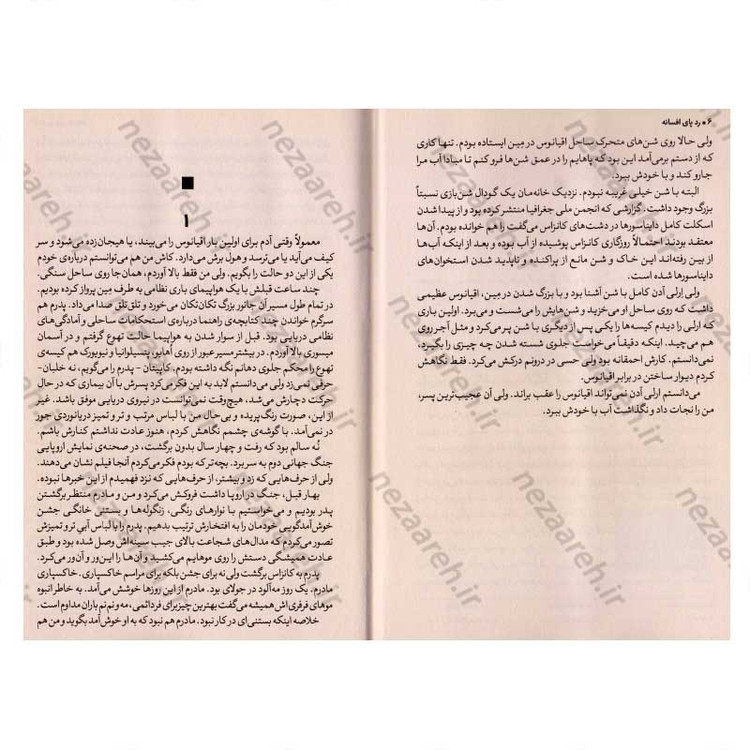 ۶ • رد پای افسانه
ولی حالا روی شن‌های متحرک ساحل اقیانوس در مِین ایستاده بودم. تنها کاری
که از دستم برمی‌آمد این بود که پاهایم را در عمق شن‌ها فرو کنم تا مبادا آب مرا
جارو کند و با خودش ببرد.
البته با شن خیلی غریبه نبودم. نزدیک خانه‌مان یک گودال شن‌بازی نسبتاً
بزرگ وجود داشت. گزارشی که انجمن ملی جغرافیا منتشر کرده بود و از پیدا شدن
اسکلت کامل دایناسورها در دشت‌های کانزاس می‌گفت را هم خوانده بودم. آن‌ها
معتقد بودند احتمالاً روزگاری کانزاس پوشیده از آب بوده و بعد از اینکه آب‌ها
از بین رفته‌اند این خاک و شن مانع از پراکنده و ناپدید شدن استخوان‌های
دایناسورها شده است.
ولی اِرلی آدن کامل با شن آشنا بود و با بزرگ شدن در مِین، اقیانوس عظیمی
داشت که روی ساحل او می‌خزید و شن‌هایش را می‌شست و می‌برد. اولین باری
که ارلی را دیدم کیسه‌ها را یکی پس از دیگری با شن پر می‌کرد و مثل آجر روی
هم می‌چید. اینکه دقیقاً می‌خواست جلوی شسته شدن چه چیزی را بگیرد،
نمی‌دانستم. کارش احمقانه بود ولی حسی در درونم درکش می‌کرد. فقط نگاهش
کردم دیوار ساختن در برابر اقیانوس.
می‌دانستم ارلی آدن نمی‌تواند اقیانوس را عقب براند. ولی آن عجیب‌ترین پسر،
من را نجات داد و نگذاشت آب با خودش ببرد.
۱
معمولاً وقتی آدم برای اولین بار اقیانوس را می‌بیند، یا هیجان‌زده می‌شود و سر
کیف می‌آید یا می‌ترسد و هول برش می‌دارد. کاش من هم می‌توانستم درباره‌ی خودم
یکی از این دو حالت را بگویم. ولی من فقط بالا آوردم، همان‌جا روی ساحل سنگی.
چند ساعت قبلش با یک هواپیمای باری نظامی به طرف مِین پرواز کرده بودیم.
در تمام طول مسیر آن جانور بزرگ تکان‌تکان می‌خورد و تلق‌تلق صدا می‌داد. پدرم هم
سرگرم خواندن چند کتابچه‌ی راهنما درباره‌ی استحکامات ساحلی و آمادگی‌های
نظامی دریایی بود. قبل از سوار شدن به هواپیما حالت تهوع گرفتم و در آسمان
میسوری بالا آوردم. در بیشتر مسیر عبور از روی اُهایو، پنسیلوانیا و نیویورک هم کیسه‌ی
تهوع را محکم جلوی دهانم نگه داشته بودم. کاپیتان - پدرم را می‌گویم، نه خلبان-
حرفی نمی‌زد ولی می‌دانستم لابد به این فکر می‌کرد پسرش با آن بیماری که در حال
حرکت دچارش می‌شد، هیچ‌وقت نمی‌توانست در نیروی دریایی موفق باشد. غیر
از این، صورت رنگ‌پریده و بی‌حال من با لباس مرتب و تر و تمیز دریانوردی جور
در نمی‌آمد. با گوشه‌ی چشمم نگاهش کردم، هنوز عادت نداشتم کنارش باشم.
نُه سالم بود که رفت و چهار سال بدون برگشت، در صحنه‌ی نمایش اروپایی
جنگ جهانی دوم به سر برد. بچه‌تر که بودم فکر می‌کردم آنجا فیلم نشان می‌دهند.
ولی از حرف‌هایی که زد و بیشتر، از حرف‌هایی که نزد فهمیدم از این خبرها نبوده.
بهار قبل، جنگ در اروپا داشت فروکش می‌کرد و من و مادرم منتظر برگشتن
پدر بودیم و می‌خواستیم با نوارهای رنگی، زنگوله‌ها و بستنی خانگی جشن
خوش‌آمدگویی خودمان را به افتخارش ترتیب بدهیم. پدرم را با لباس آبی تر و تمیزش
تصور می‌کردم که مدال‌های شجاعت بالای جیب سینه‌اش وصل شده بود و طبق
عادت همیشگی دستش را روی موهایم می‌کشید و آن‌ها را این‌ور و آن‌ور می‌کرد.
پدرم به کانزاس برگشت ولی نه برای جشن بلکه برای مراسم خاکسپاری. خاکسپاری
مادرم. یک روز مه‌آلود در جولای بود. مادرم از این روزها خوشش می‌آمد. به خاطر انبوه
موهای فرفری‌اش همیشه می‌گفت بهترین چیز برای فر دائمی، مه و نم‌نم باران مداوم است.
خلاصه اینکه بستنی‌ای در کار نبود. مادرم هم نبود که به او خوش‌آمد بگوید و من هم
nezaareh.ir